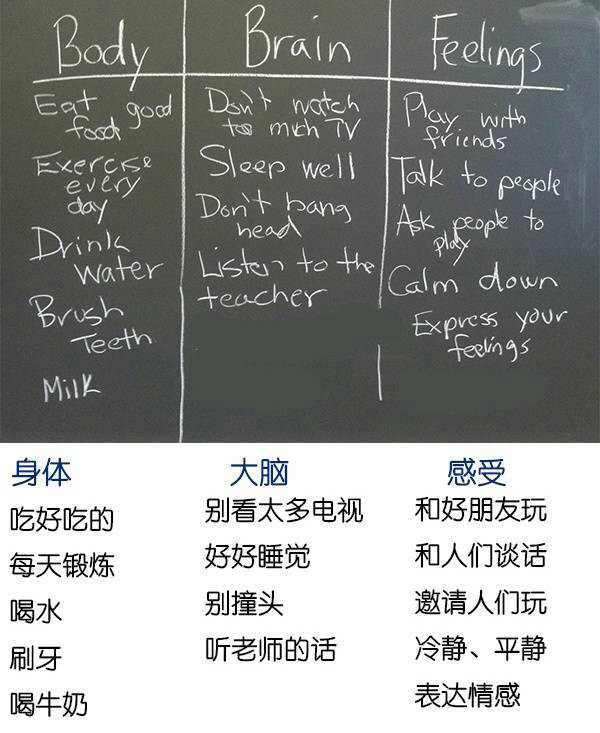 Body
Eat good
food
Exercise
every
day
Drink
Water
Brush
Teeth
Milk
Brain
Don't watch
too much TV
Sleep well
Don't bang
head
Listen to the
teacher
Feelings
Play with
friends
Talk to people
Ask people to
play
Calm down
Express your
feelings
身体
吃好吃的
每天锻炼
喝水
刷牙
喝牛奶
大脑
别看太多电视
好好睡觉
别撞头
听老师的话
感受
和好朋友玩
和人们谈话
邀请人们玩
冷静、平静
表达情感